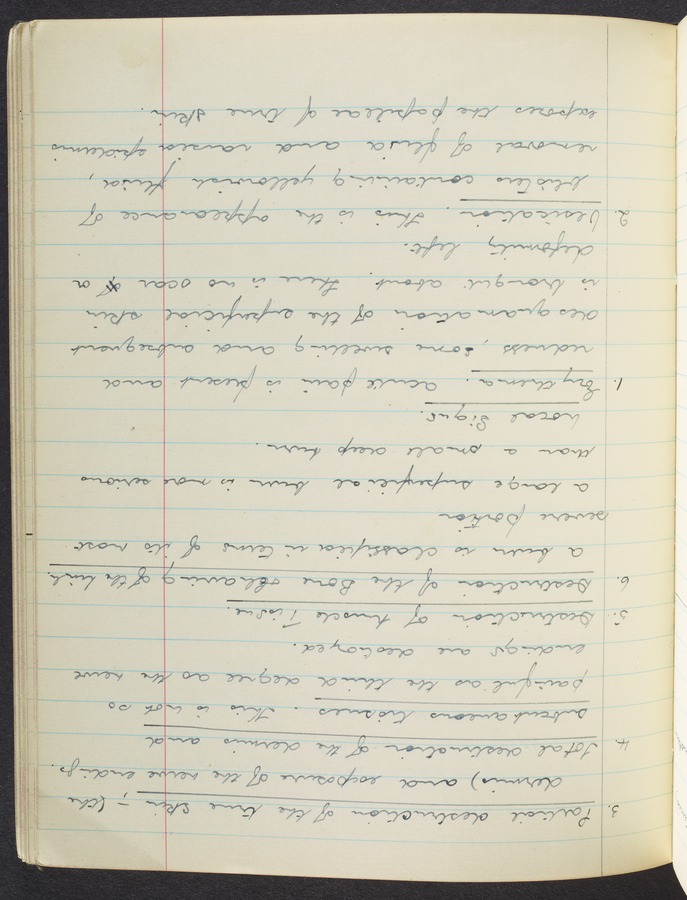 3. Partial destruction of the true skin - (the
dermis) and exposure of the nerve endings.
4. Total destruction of the dermis and
subcutaneous tissues. This is not so
painful as the third degree as the nerve
endings are destroyed.
5. Destruction of Muscle Tissue.
6. Destruction of the Bone & Charing of the limb.
a burn is classified in terms of its most
severe portion
a large superficial burn is more serious
than a small deep burn.
Local Signs.
1. Erythema. acute pain is present and
redness, some swelling and subsequent
desquamation of the superficial skin
is brought about. There is no scar or a
deformity left.
2. Vesication. This is the appearance of
blisters containing yellowish fluid,
removal of fluid and raised epidermis
exposes the papillae of true skin.